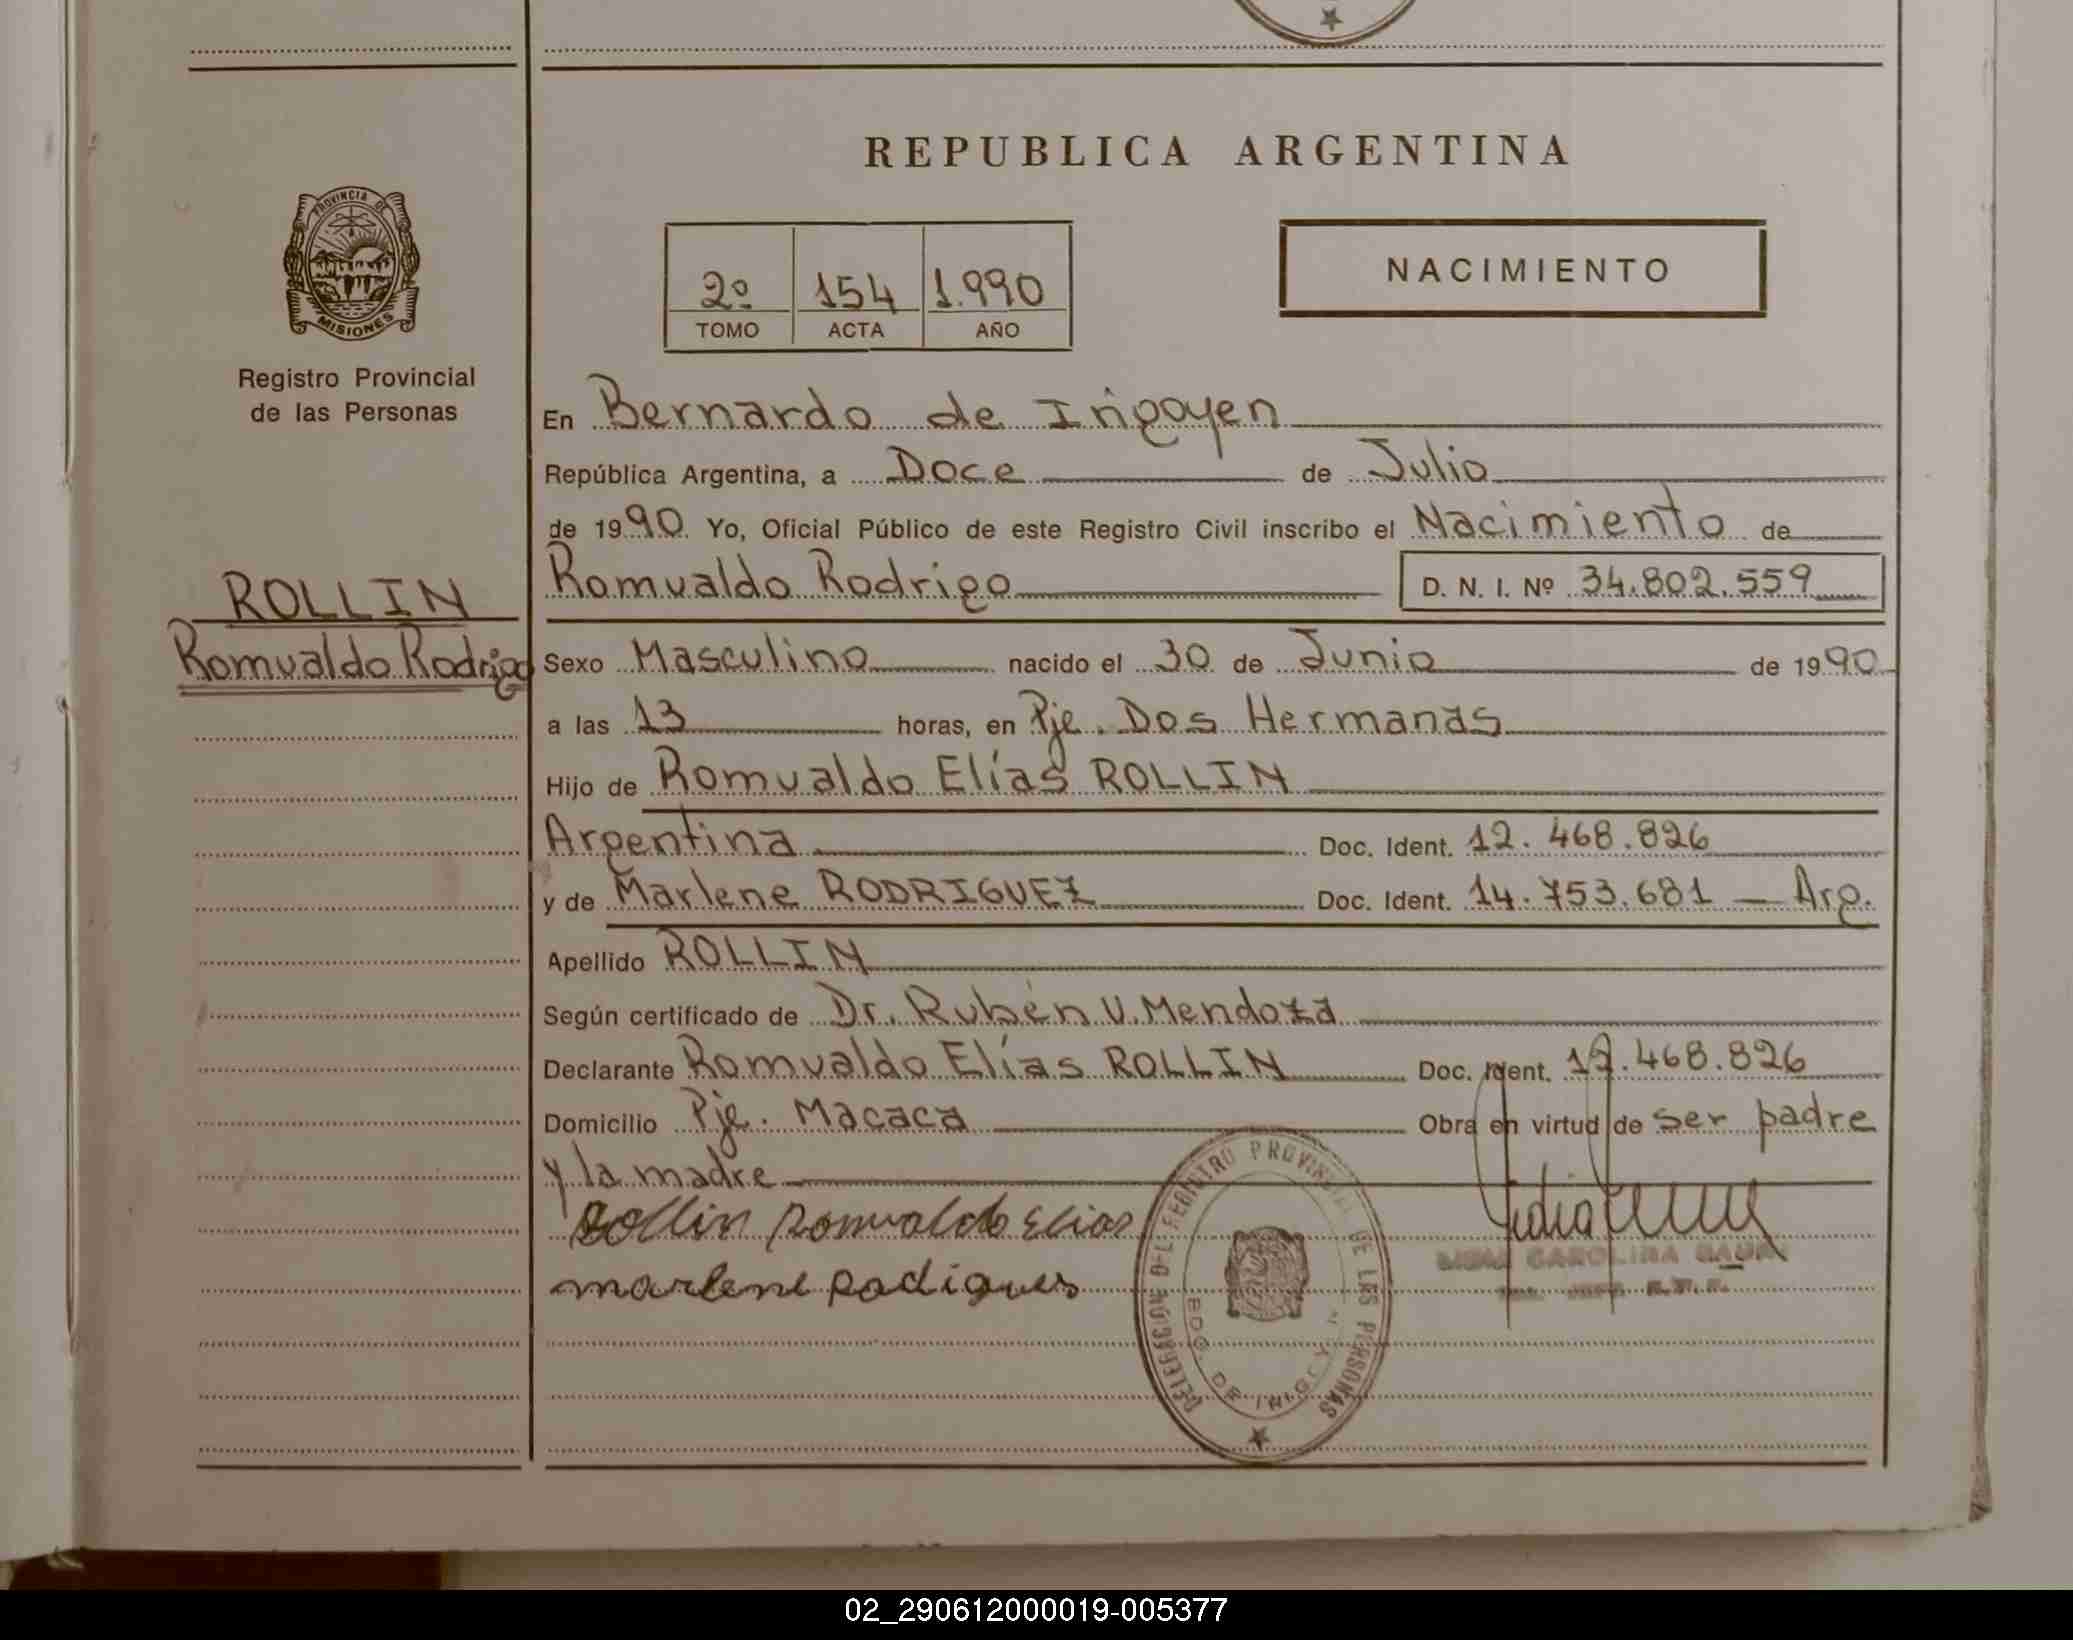 REPUBLICA ARGENTINA
PROVINCIA DE
MISIONES
Registro Provincial
de las Personas
2º 154 1.990
TOMO ACTA AÑO
NACIMIENTO
ROLLIN
Romualdo Rodrigo
En Bernardo de Irigoyen
República Argentina, a Doce de Julio
de 1990 Yo, Oficial Público de este Registro Civil inscribo el Nacimiento de
Romualdo Rodrigo D. N. I. Nº 34.802.559
Sexo Masculino nacido el 30 de Junio de 1990
a las 13 horas, en Pje. Dos Hermanas
Hijo de Romualdo Elías ROLLIN
Argentina Doc. Ident. 12.468.826
y de Marlene RODRIGUEZ Doc. Ident. 14.753.681 — Arg.
Apellido ROLLIN
Según certificado de Dr. Rubén V. Mendoza
Declarante Romualdo Elías ROLLIN Doc. Ident. 12.468.826
Domicilio Pje. Macaca Obra en virtud de ser padre
y la madre
Rollin Romualdo Elias
marlene Rodigues
DELEGACION DEL REGISTRO PROVINCIAL DE LAS PERSONAS
BDO. DE IRIGOYEN
CAROLINA
02_290612000019-005377